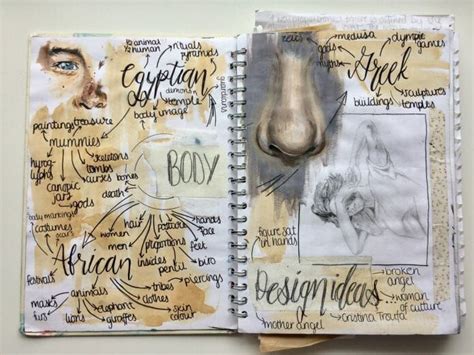 animal
human
rituals
pyramids
Egyptian
demons
guardians
temple
body image
paintings
treasure
mummies
hyrog-
lyphs
skeletons
tombs
curses
bones
canopic
jars
gods
death
BODY
body markings
scars
costumes
hair
postures
hands
face
women
men
proportions
feet
insides
pencil
biro
African
festivals
tribes
piercings
animals
clothes
masks
furs
lions
elephant
giraffes
skin
colour
zeus
medusa
olympic
games
gods
myths
Greek
sculptures
temples
buildings
figure sat
in hands
broken
angel
Design ideas
woman
of culture
cristina Troufa
mother angel